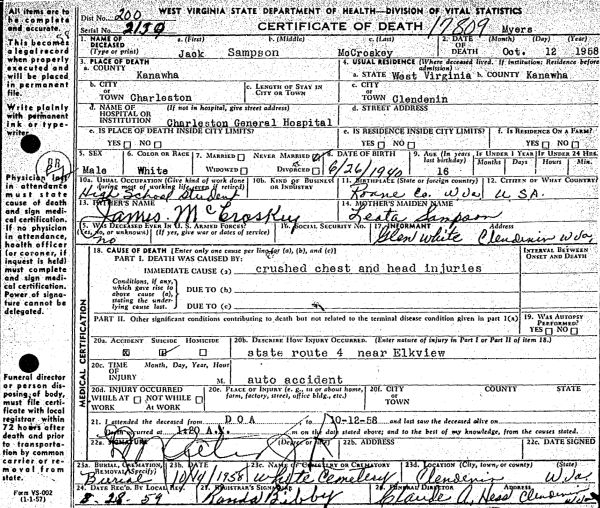 WEST VIRGINIA STATE DEPARTMENT OF HEALTH—DIVISION OF VITAL STATISTICS
Dist No. 200
Serial No. 2159
CERTIFICATE OF DEATH 17809
Myers
All items are to be complete and accurate.
This becomes a legal record when properly executed and will be placed in permanent file.
Write plainly with permanent ink or typewriter.
Physician last in attendance must state cause of death and sign medical certification. If no physician in attendance, health officer (or coroner, if inquest is held) must complete and sign medical certification. Power of signature cannot be delegated.
Funeral director or person disposing of body, must file certificate with local registrar within 72 hours after death and prior to transportation by common carrier or removal from state.
Form VS-002
(1-1-57)
1. NAME OF DECEASED (Type or print) a. (First) b. (Middle) c. (Last)
Jack Sampson McCroskey
2. DATE OF DEATH (Month) (Day) (Year)
Oct. 12 1958
3. PLACE OF DEATH
a. COUNTY
Kanawha
4. USUAL RESIDENCE (Where deceased lived. If institution: Residence before admission)
a. STATE West Virginia b. COUNTY Kanawha
b. CITY OR TOWN Charleston
c. LENGTH OF STAY IN CITY OR TOWN
c. CITY OR TOWN Clendenin
d. NAME OF HOSPITAL OR INSTITUTION (If not in hospital, give street address)
Charleston General Hospital
d. STREET ADDRESS
e. IS PLACE OF DEATH INSIDE CITY LIMITS?
YES NO
e. IS RESIDENCE INSIDE CITY LIMITS?
YES NO
f. IS RESIDENCE ON A FARM?
YES NO
5. SEX
Male
6. COLOR OR RACE
White
7. MARRIED NEVER MARRIED
WIDOWED DIVORCED
8. DATE OF BIRTH
6/26/1942
9. AGE (In years last birthday)
16
IF UNDER 1 YEAR
Months Days
IF UNDER 24 HRS.
Hours Min.
10a. USUAL OCCUPATION (Give kind of work done during most of working life, even if retired)
High School Student
10b. KIND OF BUSINESS OR INDUSTRY
11. BIRTHPLACE (State or foreign country)
Roane Co. W Va.
12. CITIZEN OF WHAT COUNTRY?
U. S. A.
13. FATHER'S NAME
James McCroskey
14. MOTHER'S MAIDEN NAME
Sampson
15. WAS DECEASED EVER IN U. S. ARMED FORCES?
(Yes, no, or unknown) (If yes, give war or dates of service)
no
16. SOCIAL SECURITY NO.
17. INFORMANT ADDRESS
Glen White Clendenin W Va.
18. CAUSE OF DEATH [Enter only one cause per line for (a), (b), and (c)]
INTERVAL BETWEEN ONSET AND DEATH
PART I. DEATH WAS CAUSED BY:
IMMEDIATE CAUSE (a) crushed chest and head injuries
Conditions, if any, which gave rise to above cause (a), stating the underlying cause last.
DUE TO (b)
DUE TO (c)
MEDICAL CERTIFICATION
PART II. Other significant conditions contributing to death but not related to the terminal disease condition given in part I(a)
19. WAS AUTOPSY PERFORMED?
YES NO
20a. ACCIDENT SUICIDE HOMICIDE
X
20b. DESCRIBE HOW INJURY OCCURRED. (Enter nature of injury in Part I or Part II of item 18.)
state route 4 near Elkview
20c. TIME OF INJURY Month, Day, Year, Hour
M.
auto accident
20d. INJURY OCCURRED
WHILE AT WORK NOT WHILE AT WORK
20e. PLACE OF INJURY (e. g., in or about home, farm, factory, street, office bldg., etc.)
20f. CITY COUNTY STATE
21. I attended the deceased from D O A to 10-12-58 and last saw the deceased alive on
Death occurred at 1:20 A.M. m on the day stated above; and to the best of my knowledge, from the causes stated.
22a. SIGNATURE (Degree or title)
22b. ADDRESS
22c. DATE SIGNED
23a. BURIAL, CREMATION, REMOVAL (Specify)
Burial
23b. DATE
10/14/1958
23c. NAME OF CEMETERY OR CREMATORY
White Cemetery
23d. LOCATION (City, town, or county) (State)
Clendenin W Va.
24. DATE REC'D BY LOCAL REG.
8-28-59
25. REGISTRAR'S SIGNATURE
Bibby
26. FUNERAL DIRECTOR ADDRESS
Claude A. Hess Clendenin